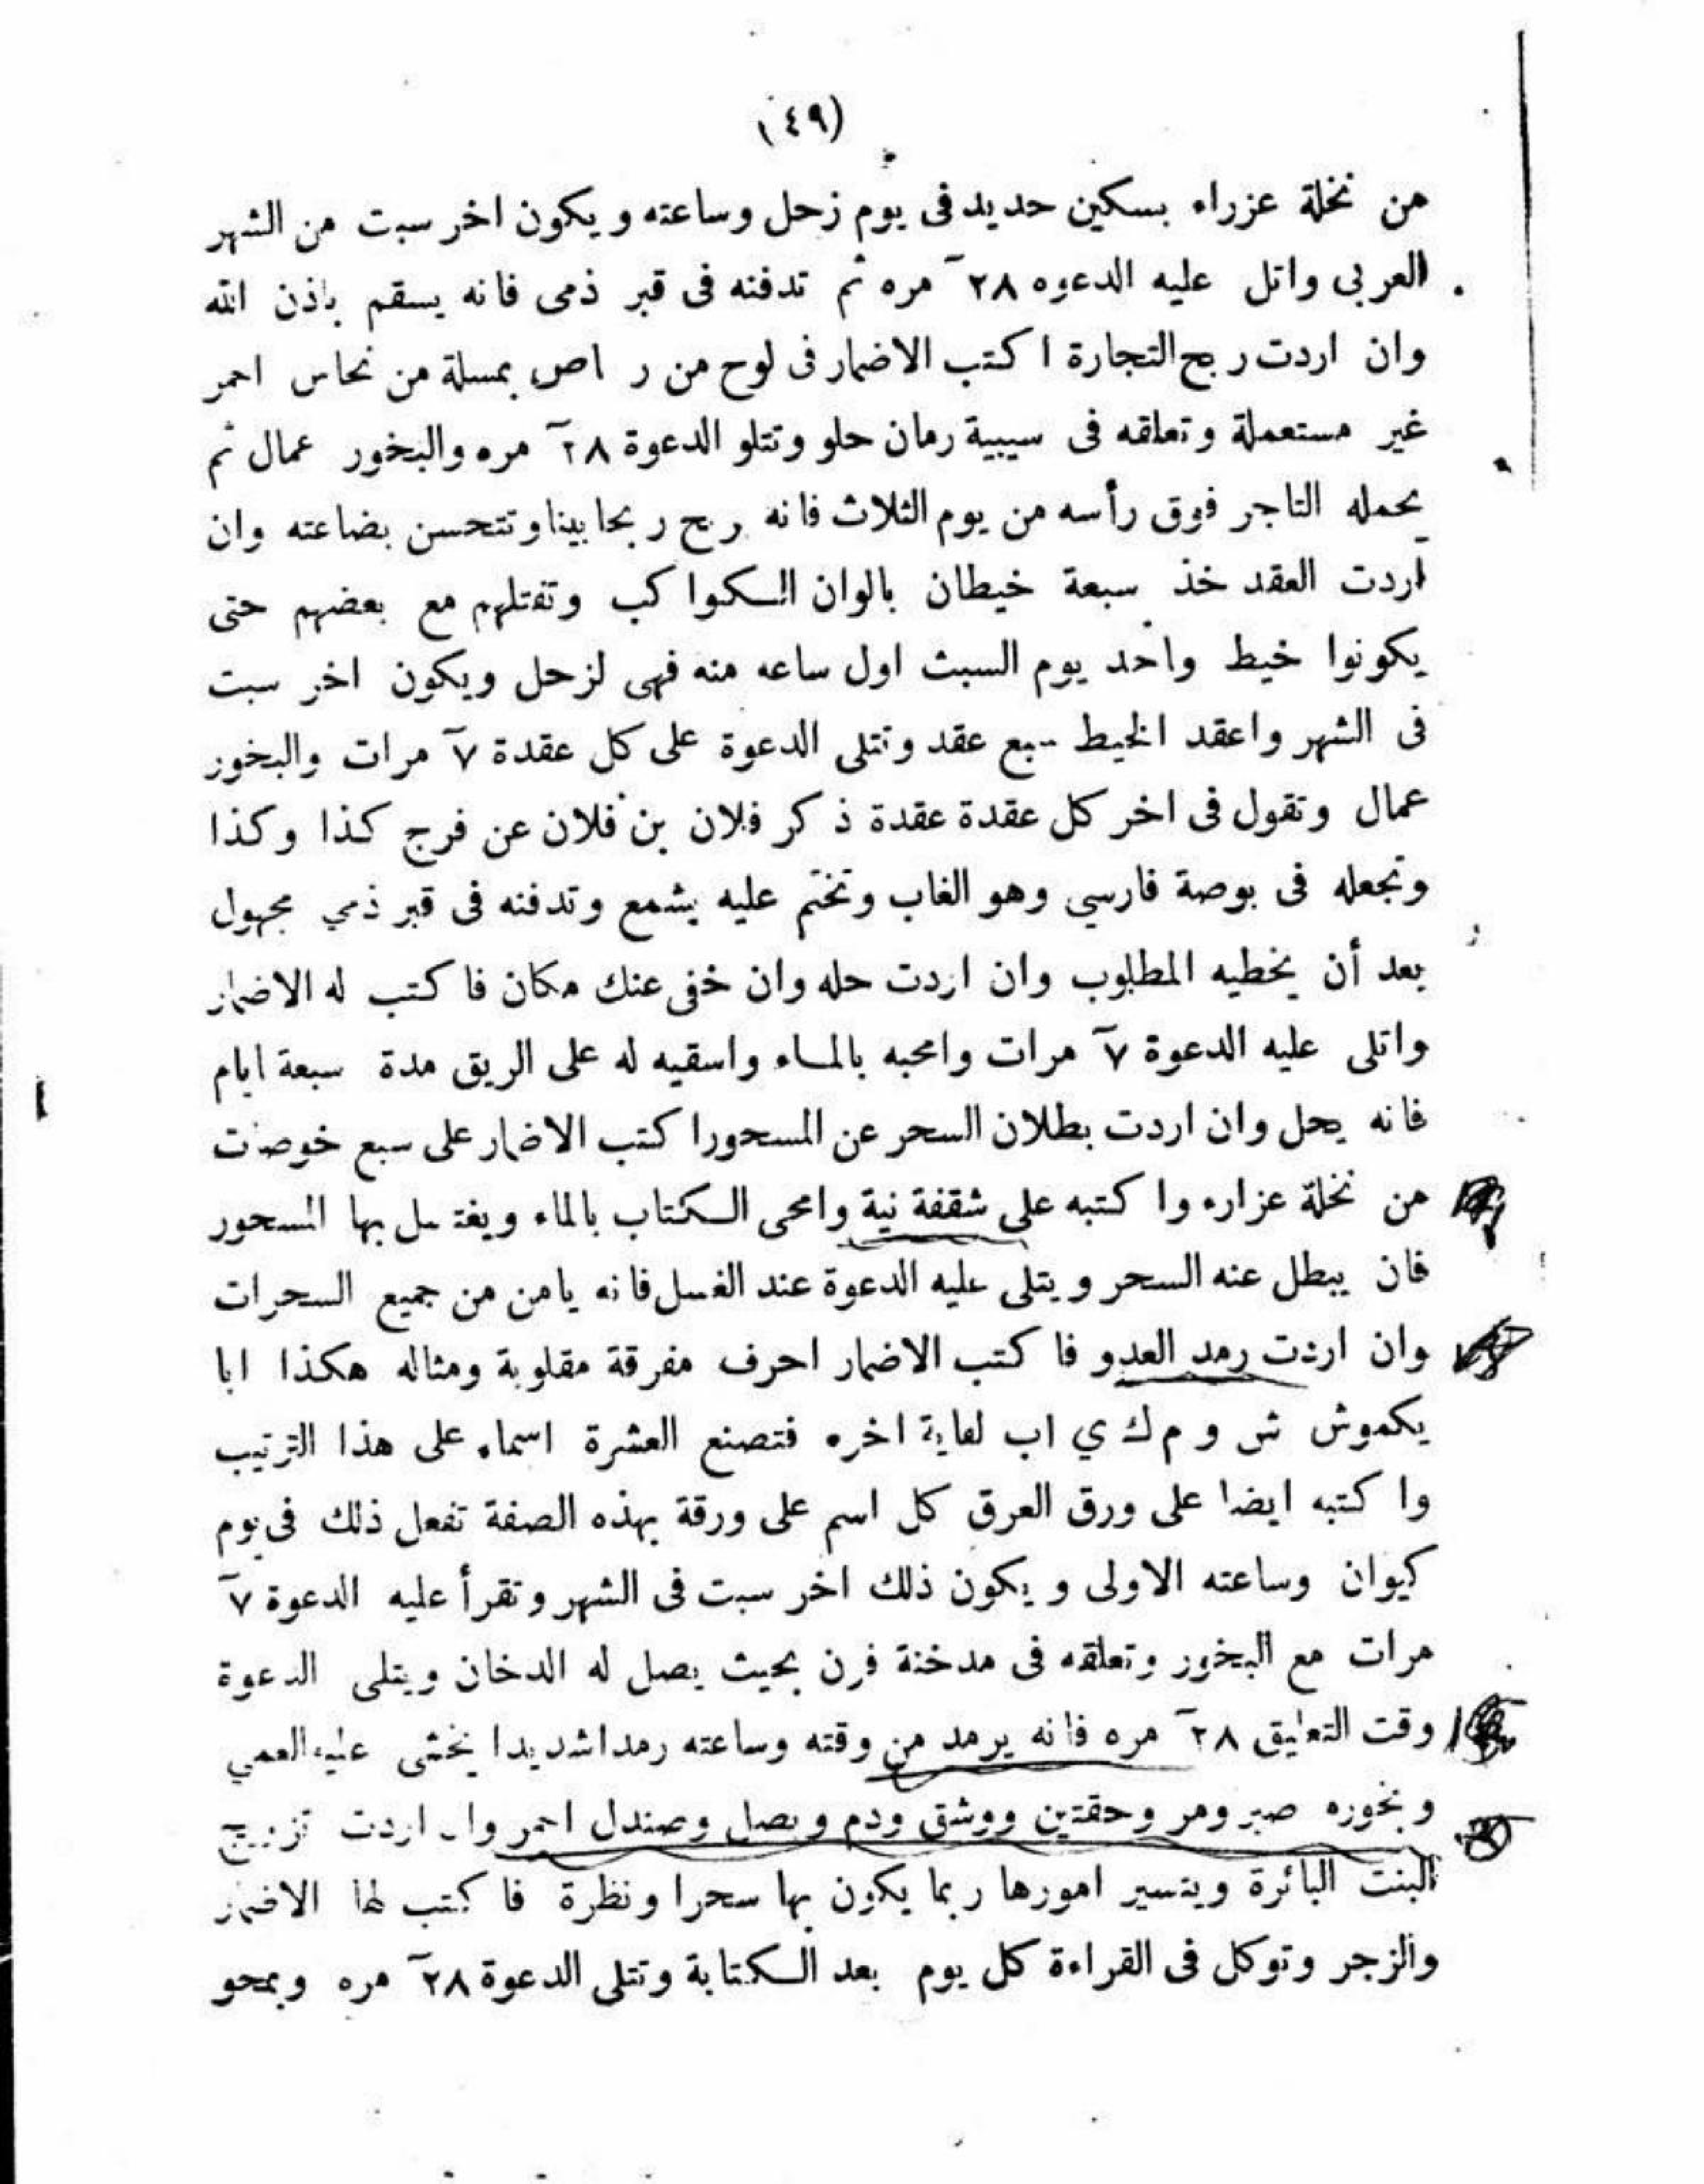 (٤٩)
من نخلة عزراء بسكين حديد فى يوم زحل وساعته ويكون اخر سبت من الشهر
العربى واتل عليه الدعوه ٢٨ مره ثم تدفنه فى قبر ذمى فانه يسقم باذن الله
وان اردت ربح التجارة اكتب الاضمار فى لوح من ر اص بمسلة من نحاس احمر
غير مستعملة وتعلقه فى سيبية رمان حلو وتتلو الدعوة ٢٨ مره والبخور عمال ثم
يحمله التاجر فوق رأسه من يوم الثلاث فانه ربح ربحا بينا وتتحسن بضاعته وان
اردت العقد خذ سبعة خيطان بالوان الكواكب وتفتلهم مع بعضهم حتى
يكونوا خيط واحد يوم السبت اول ساعه منه فهى لزحل ويكون اخر سبت
فى الشهر واعقد الخيط سبع عقد وتتلى الدعوة على كل عقدة ٧ مرات والبخور
عمال وتقول فى اخر كل عقدة عقدة ذكر فلان بن فلان عن فرج كذا وكذا
وتجعله فى بوصة فارسي وهو الغاب وتختم عليه بشمع وتدفنه فى قبر ذمي مجهول
بعد أن يخطيه المطلوب وان اردت حله وان خفى عنك مكان فاكتب له الاضمار
واتلى عليه الدعوة ٧ مرات وامحبه بالماء واسقيه له على الريق مدة سبعة ايام
فانه يحل وان اردت بطلان السحر عن المسحور اكتب الاضمار على سبع خوصات
من نخلة عزاره واكتبه على شقفة نية وامحى الكتاب بالماء ويغتسل بها المسحور
فان يبطل عنه السحر ويتلى عليه الدعوة عند الغسل فانه يامن من جميع السحرات
وان اردت رمد العدو فاكتب الاضمار احرف مفرقة مقلوبة ومثاله هكذا ابا
يكموش ش و م ك ي اب لغاية اخره فتصنع العشرة اسماء على هذا الترتيب
واكتبه ايضا على ورق العرق كل اسم على ورقة بهذه الصفة تفعل ذلك فى يوم
كيوان وساعته الاولى ويكون ذلك اخر سبت فى الشهر وتقرأ عليه الدعوة ٧
مرات مع البخور وتعلقه فى مدخنة فرن بحيث يصل له الدخان ويتلى الدعوة
وقت التعليق ٢٨ مره فانه يرمد من وقته وساعته رمدا شديدا يخشى عليه العمي
وبخوره صبر ومر وحقتين ووشق ودم وبصل وصندل احمر وان اردت تزويج
البنت البائرة ويتسير امورها ربما يكون بها سحرا ونظرة فاكتب لها الاضمار
والزجر وتوكل فى القراءة كل يوم بعد الكتابة وتتلى الدعوة ٢٨ مره ويمحو